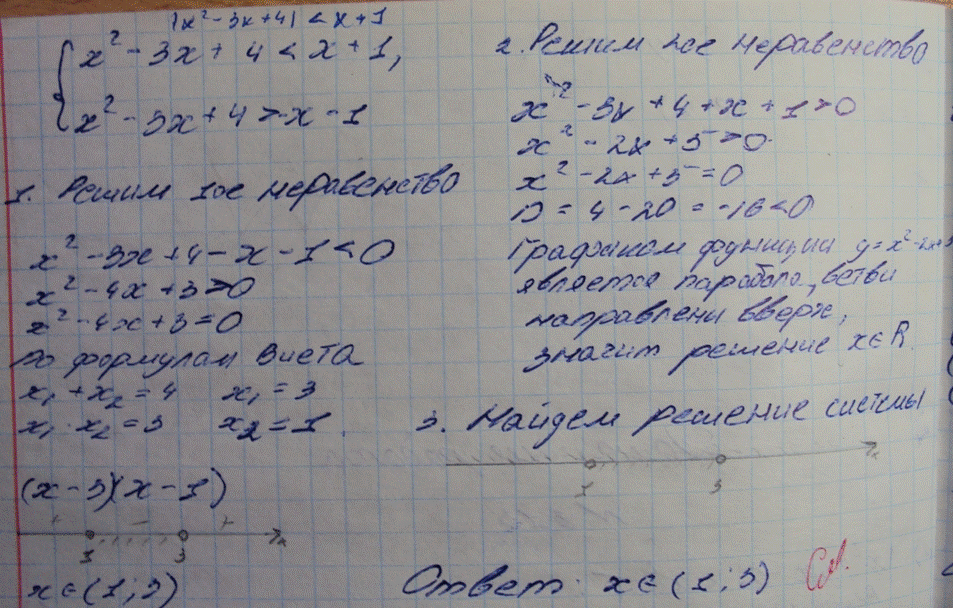 |x² - 3x + 4| < x + 1
{ x² - 3x + 4 < x + 1,
x² - 3x + 4 > -x - 1
1. Решим 1ое неравенство
x² - 3x + 4 - x - 1 < 0
x² - 4x + 3 > 0
x² - 4x + 3 = 0
по формулам Виета
x₁ + x₂ = 4 x₁ = 3
x₁ · x₂ = 3 x₂ = 1.
(x - 3)(x - 1)
+ - +
1 3 x
x ∈ (1; 3)
2. Решим 2ое неравенство
x² - 3x + 4 + x + 1 > 0
x² - 2x + 5 > 0
x² - 2x + 5 = 0
D = 4 - 20 = -16 < 0
Графиком функции y = x² - 2x + 5
является парабола, ветви
направлени вверх,
значит решение x ∈ R.
3. Найдем решение системы
1 3 x
Ответ: x ∈ (1; 3)